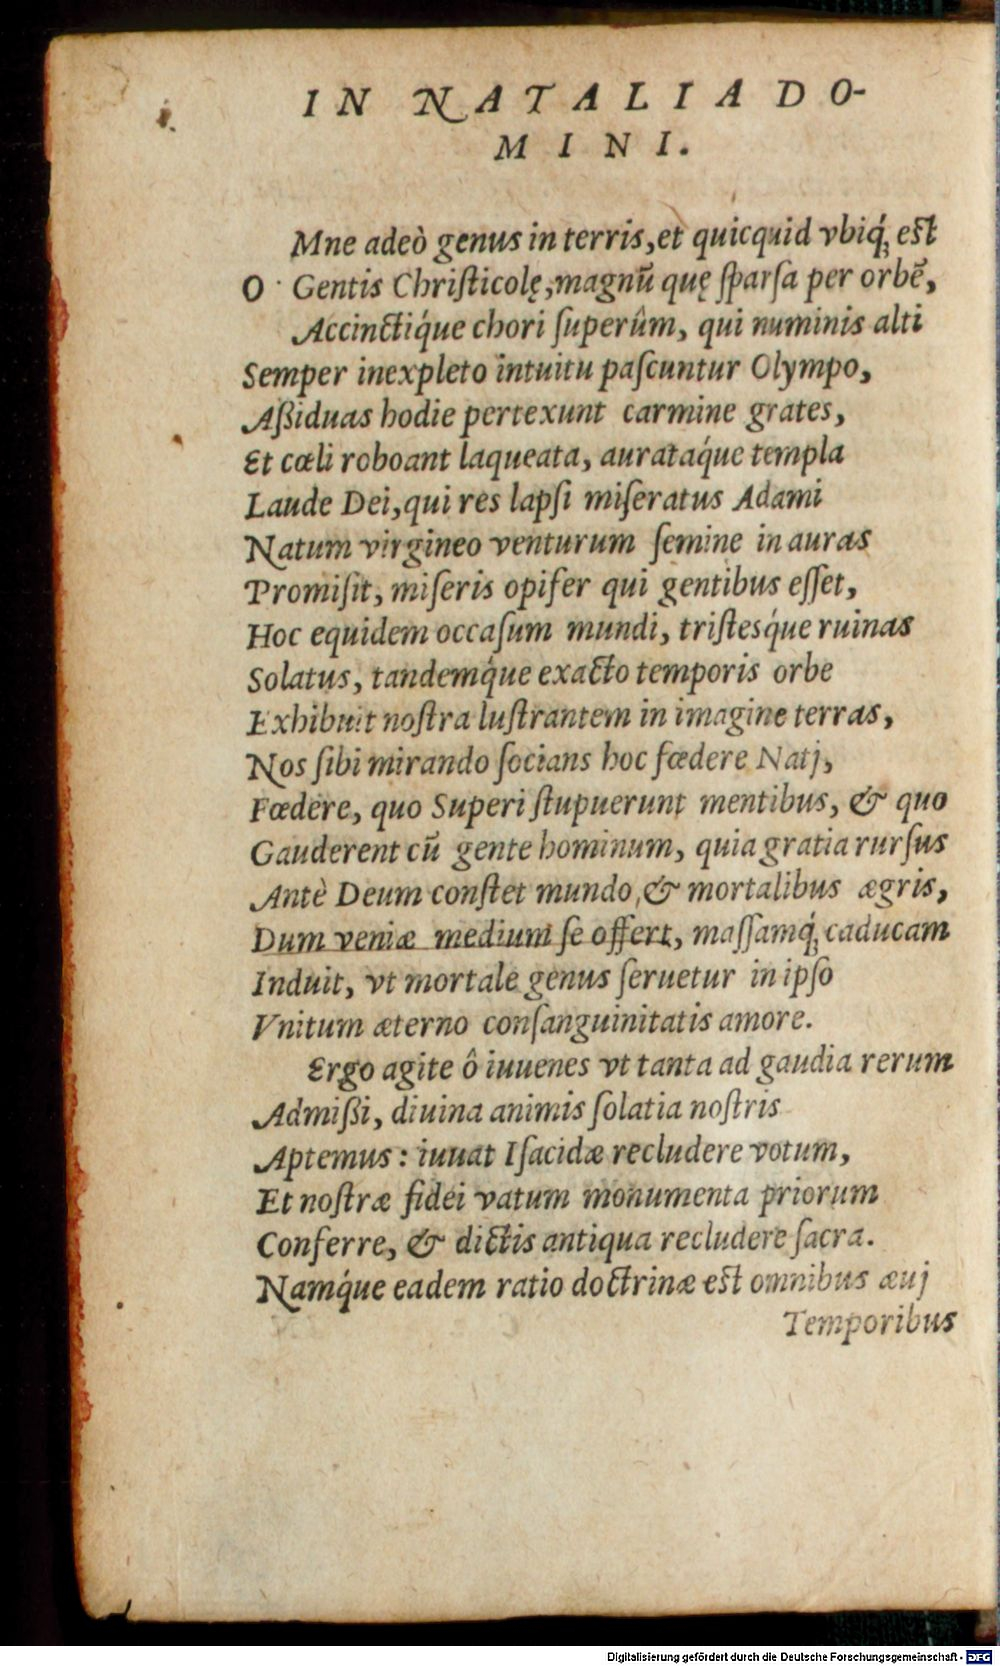 IN NATALIA DO-
MINI.
Mne adeò genus in terris, et quicquid vbiq́; est
O Gentis Christicolę, magnũ quę sparsa per orbẽ,
Accinctiq́ue chori superûm, qui numinis alti
Semper inexpleto intuitu pascuntur Olympo,
Aßiduas hodie pertexunt carmine grates,
Et cœli roboant laqueata, aurataq́ue templa
Laude Dei, qui res lapsi miseratus Adami
Natum virgineo venturum semine in auras
Promisit, miseris opifer qui gentibus esset,
Hoc equidem occasum mundi, tristesq́ue ruinas
Solatus, tandemq́ue exacto temporis orbe
Exhibuit nostra lustrantem in imagine terras,
Nos sibi mirando socians hoc fœdere Natj,
Fœdere, quo Superi stupuerunt mentibus, & quo
Gauderent cũ gente hominum, quia gratia rursus
Antè Deum constet mundo, & mortalibus ægris,
Dum veniæ medium se offert, massamq́; caducam
Induit, vt mortale genus seruetur in ipso
Vnitum æterno consanguinitatis amore.
Ergo agite ô iuuenes vt tanta ad gaudia rerum
Admißi, diuina animis solatia nostris
Aptemus: iuuat Isacidæ recludere votum,
Et nostræ fidei vatum monumenta priorum
Conferre, & dictis antiqua recludere sacra.
Namq́ue eadem ratio doctrinæ est omnibus æuj
Temporibus
Digitalisierung gefördert durch die Deutsche Forschungsgemeinschaft - DFG